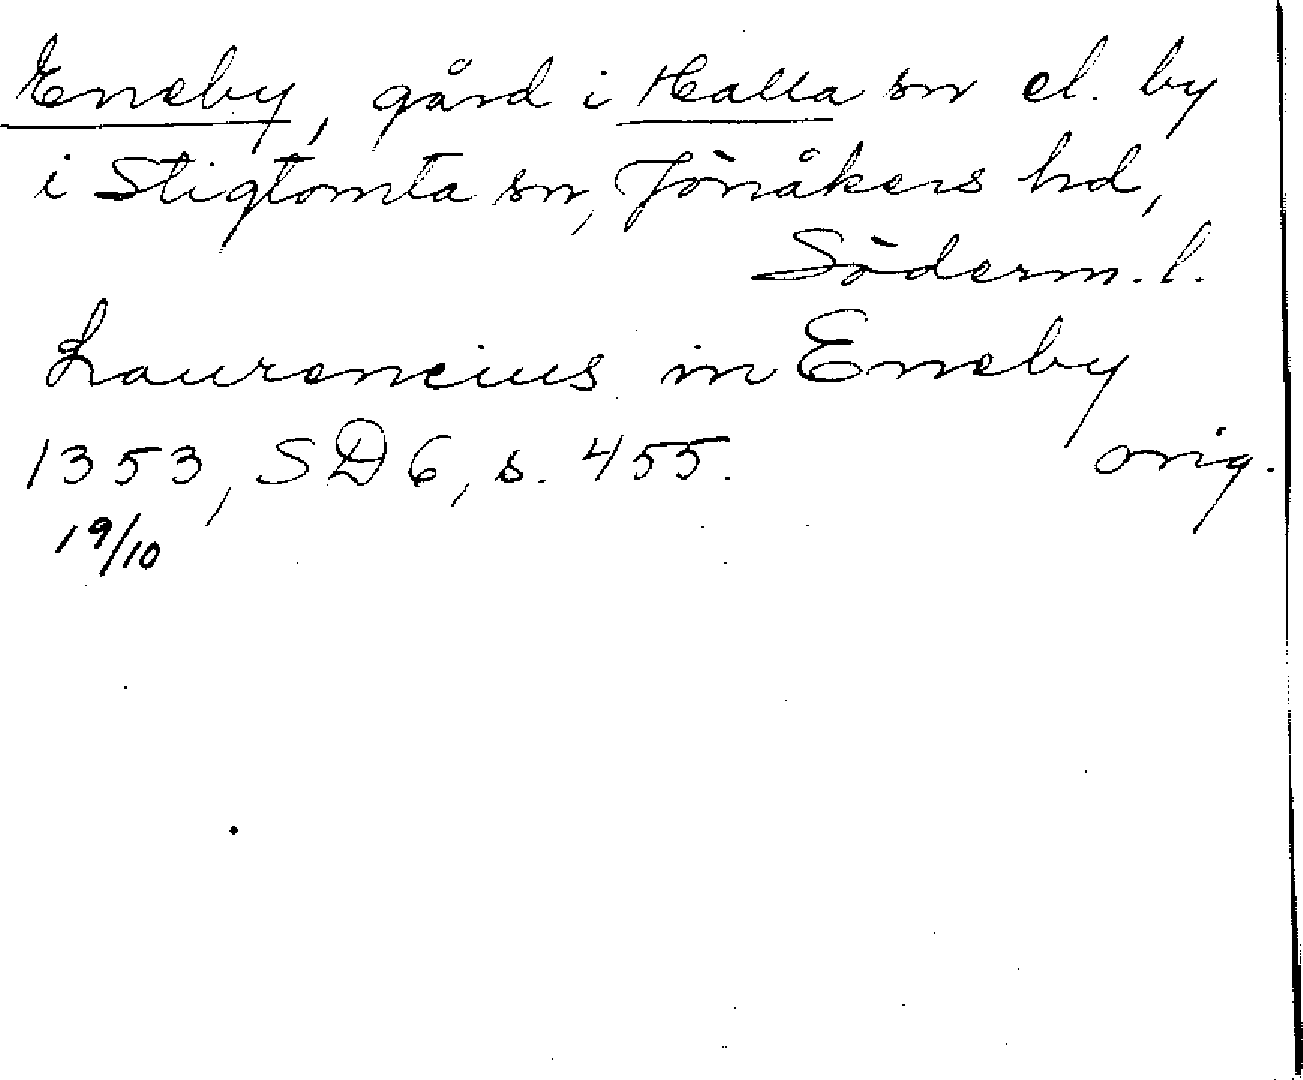 Eneby, gård i Halla sn el. by
i Stigtomta sn, Jönåkers hd,
Söderm. l.
Laurencius in Eneby
1353, SD 6, s. 455. orig.
19/10